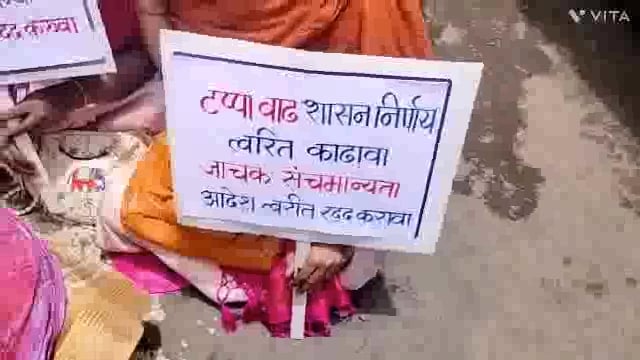 रद्द करावा
टप्पा वाढ शासन निर्णय
त्वरित काढावा
जाचक संचमान्यता
आदेश त्वरीत रद्द करावा
VITA